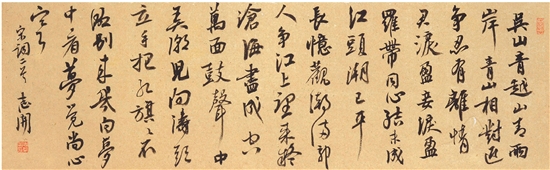 吳山青越山青兩
岸青山相對迎
争忍有離情
君淚盈妾淚盈
羅帶同心結未成
江頭潮已平
長憶觀潮滿郭
人争江上望來疑
滄海盡成空
萬面鼓聲中
弄潮兒向濤頭
立手把紅旗々不
濕別來幾向夢
中看夢覺尚心
寒
宋詞二首 志開